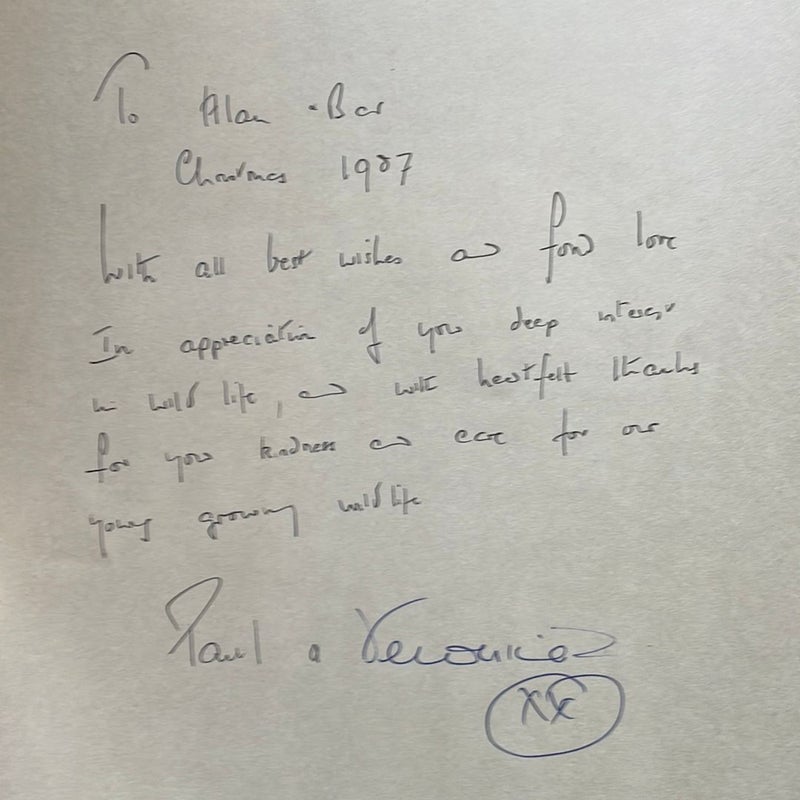 To Alan
Christmas 1987
With all best wishes and fond love
In appreciation of your deep interest
in wild life, and with heartfelt thanks
for your kindness and care for our
young growing wild life
Paul & Veronica
XX